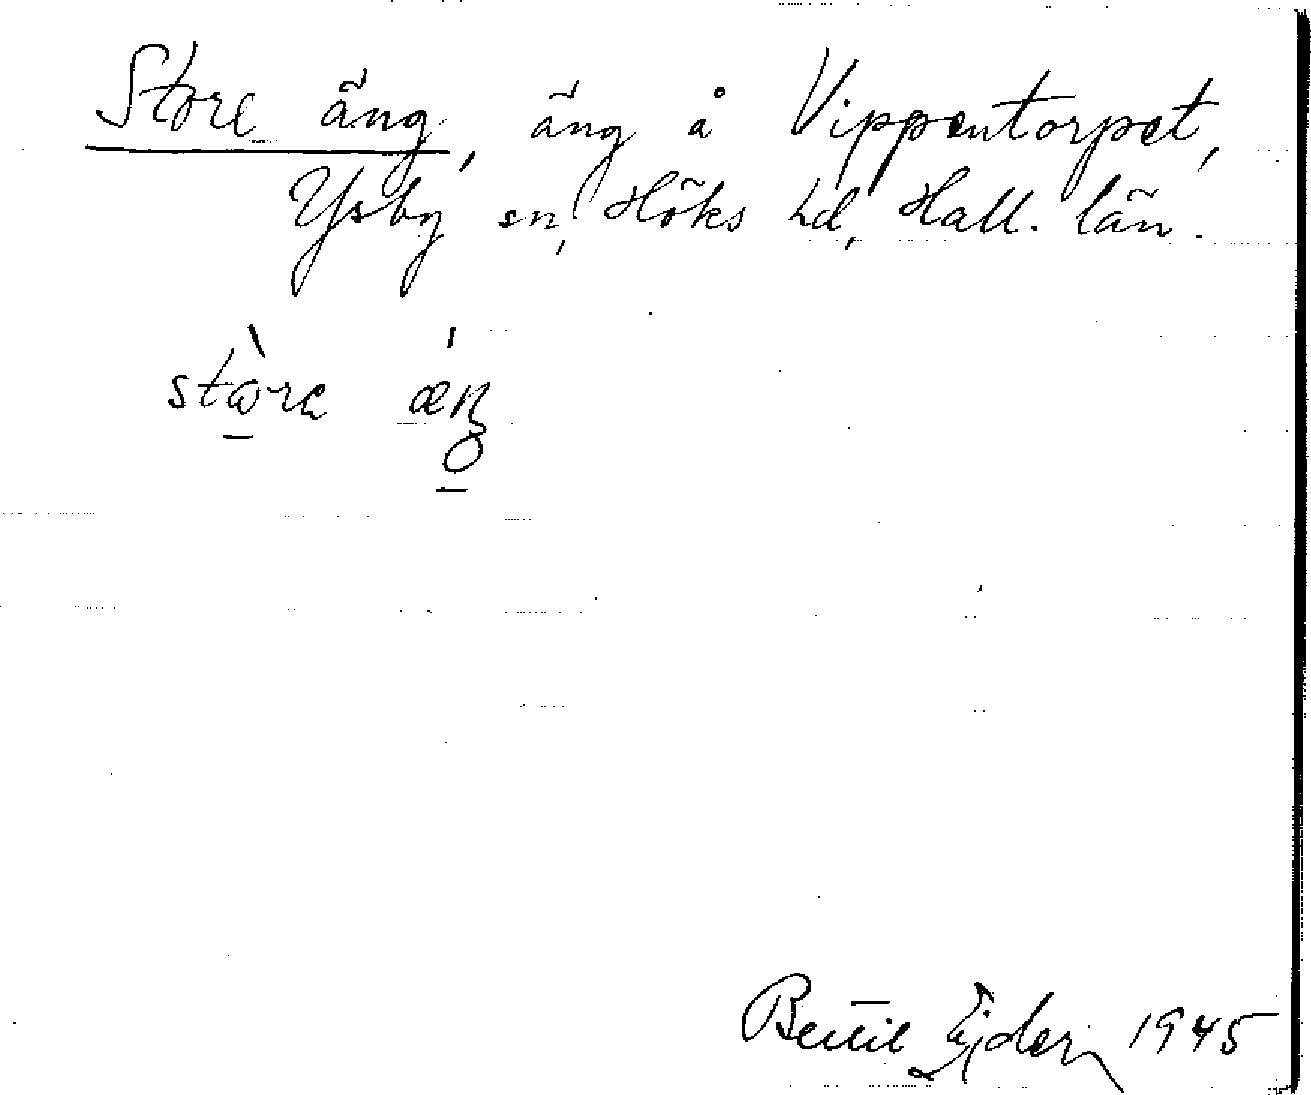 Store äng, äng å Vippentorpet,
Ysby sn, Höks hd, Hall. län.
stɷ̀re æ´ŋ
Bertil Ejder 1945